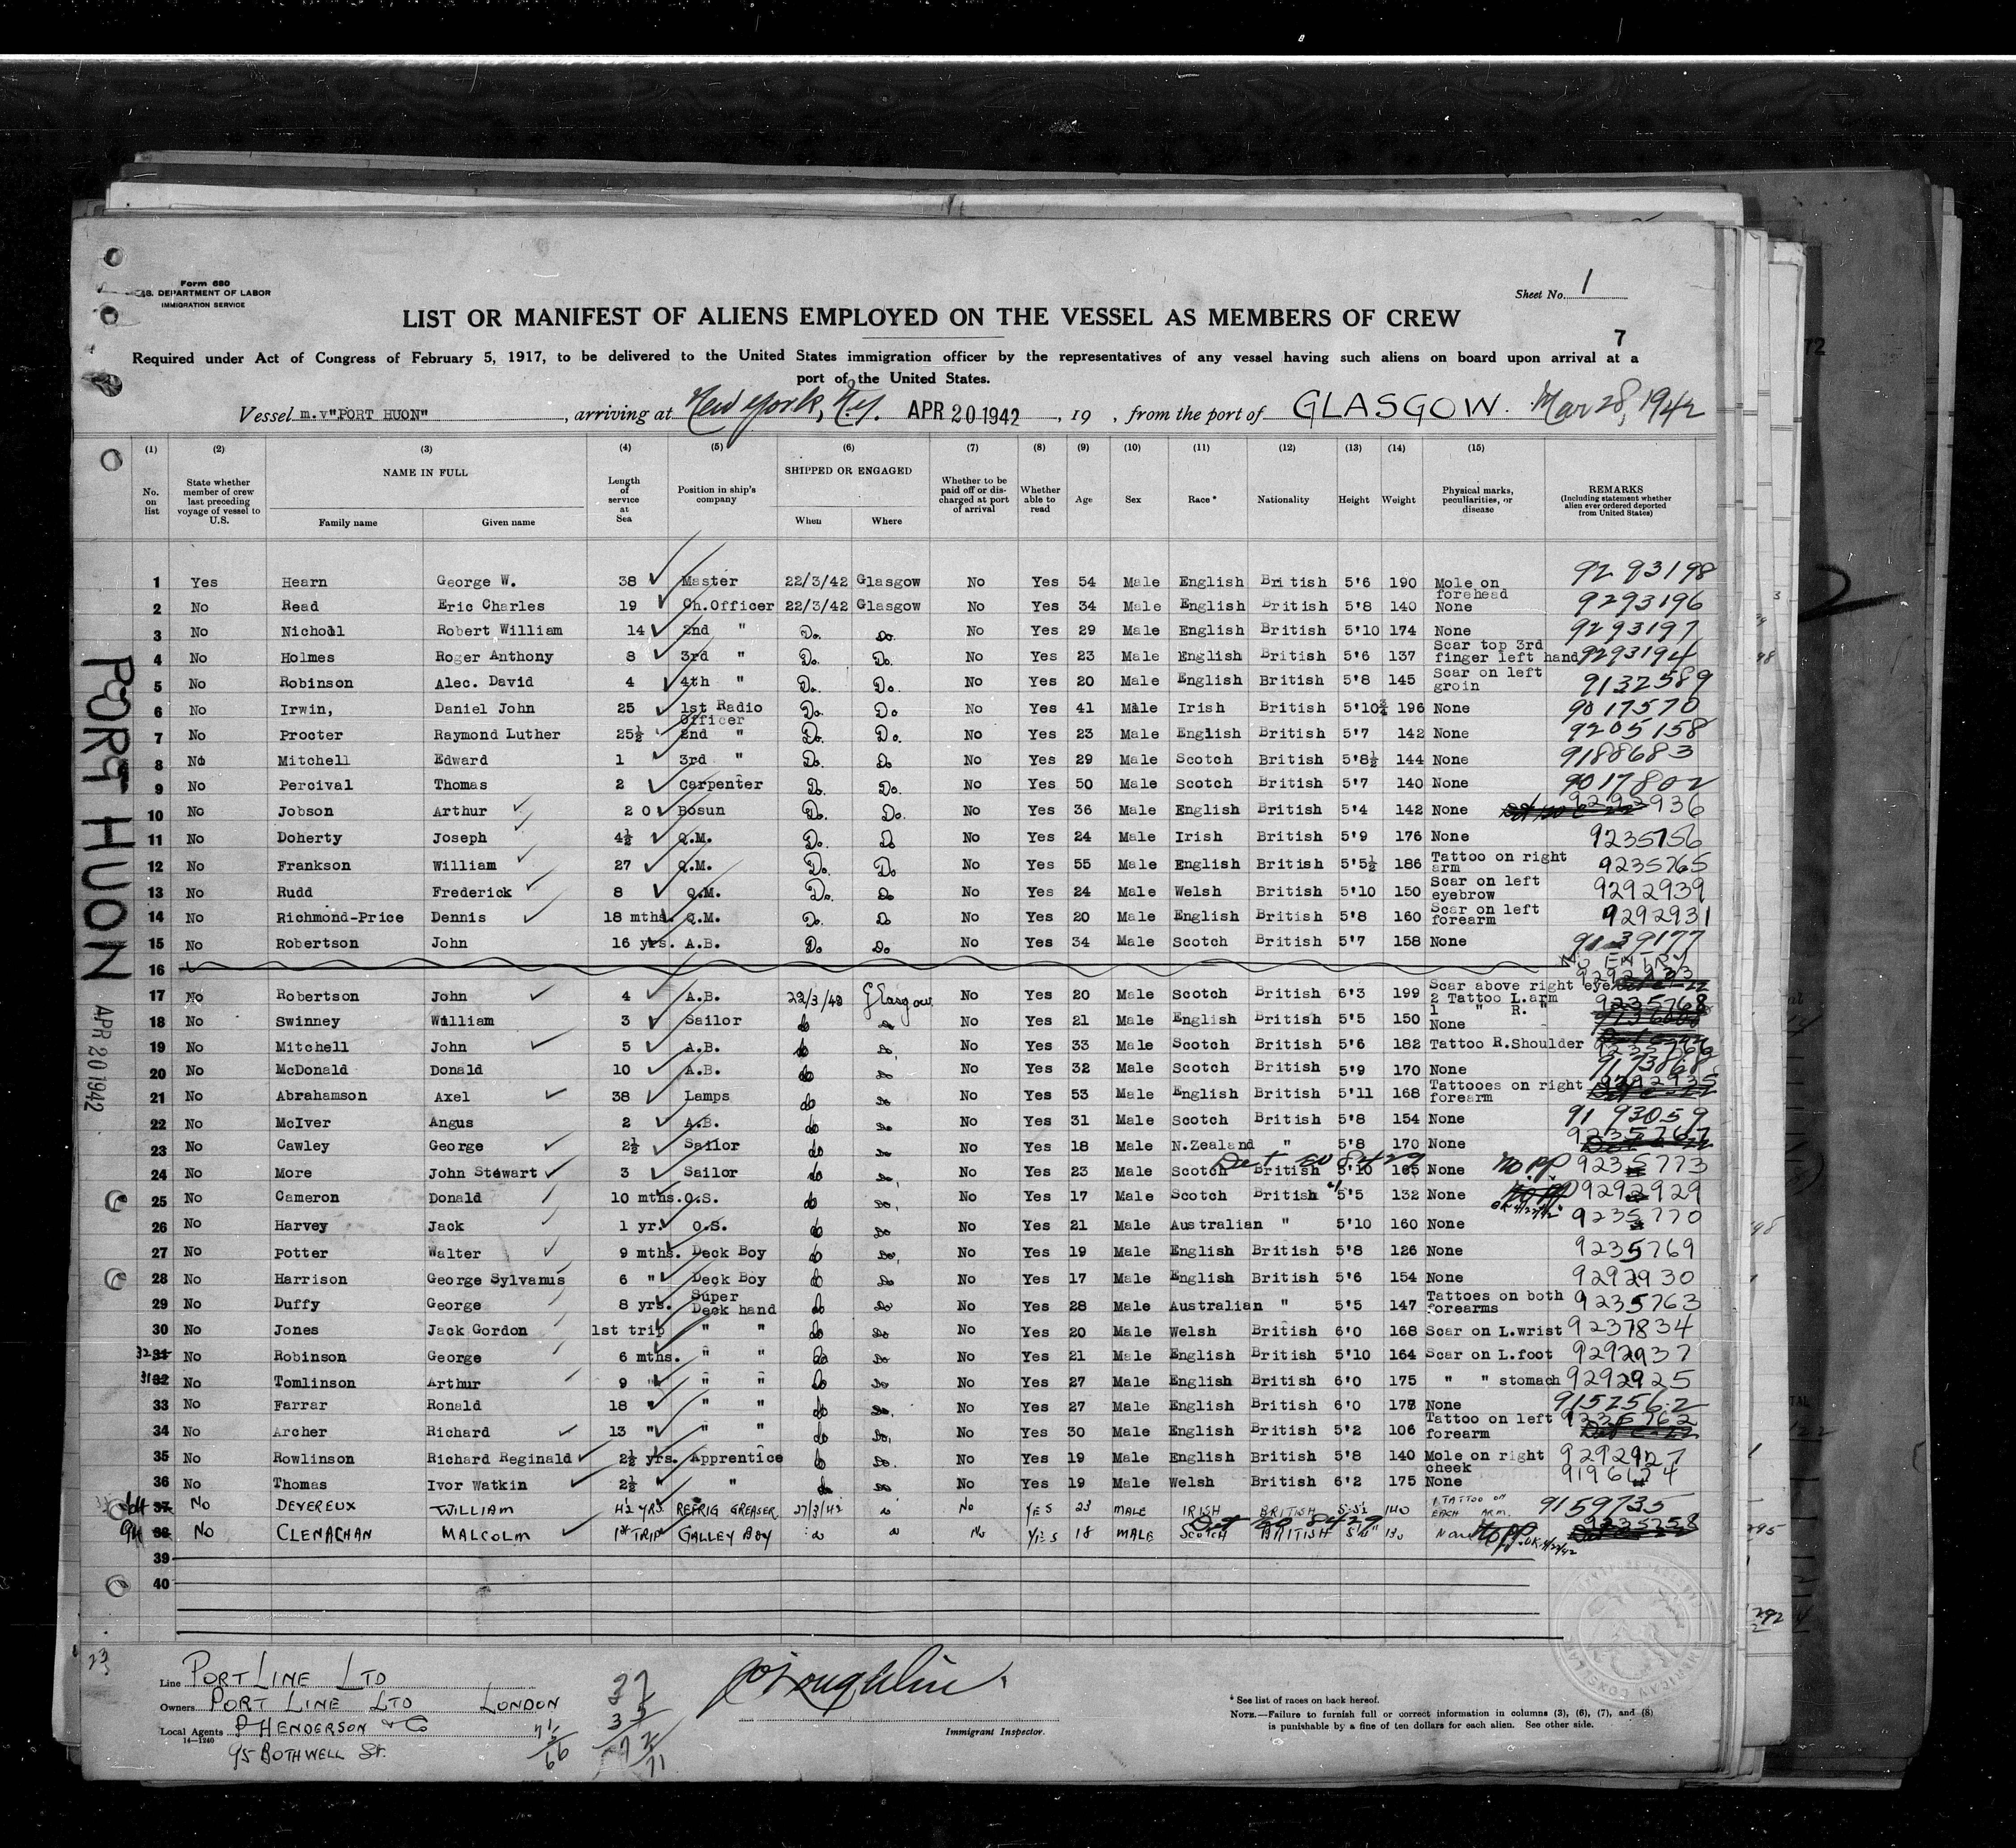 Form 680
U.S. DEPARTMENT OF LABOR
IMMIGRATION SERVICE
Sheet No. 1
LIST OR MANIFEST OF ALIENS EMPLOYED ON THE VESSEL AS MEMBERS OF CREW
7
Required under Act of Congress of February 5, 1917, to be delivered to the United States immigration officer by the representatives of any vessel having such aliens on board upon arrival at a
port of the United States.
Vessel m.v"PORT HUON", arriving at New York, N.Y. APR 20 1942, 19 , from the port of GLASGOW. Mar 28, 1942
(1) (2) (3) (4) (5) (6) (7) (8) (9) (10) (11) (12) (13) (14) (15)
No. on list State whether member of crew last preceding voyage of vessel to U.S. NAME IN FULL Family name Given name Length of service at Sea Position in ship's company SHIPPED OR ENGAGED When Where Whether to be paid off or discharged at port of arrival Whether able to read Age Sex Race * Nationality Height Weight Physical marks, peculiarities, or disease REMARKS (Including statement whether alien ever ordered deported from United States)
1 Yes Hearn George W. 38 Master 22/3/42 Glasgow No Yes 54 Male English British 5'6 190 Mole on forehead 9293198
2 No Read Eric Charles 19 Ch.Officer 22/3/42 Glasgow No Yes 34 Male English British 5'8 140 None 9293196
3 No Nicholl Robert William 14 2nd " Do. Do. No Yes 29 Male English British 5'10 174 None 9293197
4 No Holmes Roger Anthony 8 3rd " Do. Do. No Yes 23 Male English British 5'6 137 Scar top 3rd finger left hand 9293194
5 No Robinson Alec. David 4 4th " Do. Do. No Yes 20 Male English British 5'8 145 Scar on left groin 9132589
6 No Irwin, Daniel John 25 1st Radio Officer Do. Do No Yes 41 Male Irish British 5'10¾ 196 None 9017570
7 No Procter Raymond Luther 25½ 2nd " Do. Do. No Yes 23 Male English British 5'7 142 None 9205158
8 No Mitchell Edward 1 3rd " Do. Do No Yes 29 Male Scotch British 5'8½ 144 None 9188683
9 No Percival Thomas 2 Carpenter Do. Do. No Yes 50 Male Scotch British 5'7 140 None 9017802
10 No Jobson Arthur 20 Bosun Do. Do. No Yes 36 Male English British 5'4 142 None 9292936
11 No Doherty Joseph 4½ Q.M. Do. Do No Yes 24 Male Irish British 5'9 176 None 9235756
12 No Frankson William 27 Q.M. Do. Do No Yes 55 Male English British 5'5½ 186 Tattoo on right arm 9235765
13 No Rudd Frederick 8 Q.M. Do. Do No Yes 24 Male Welsh British 5'10 150 Scar on left eyebrow 9292939
14 No Richmond-Price Dennis 18 mths. Q.M. Do. Do No Yes 20 Male English British 5'8 160 Scar on left forearm 9292931
15 No Robertson John 16 yrs. A.B. Do Do No Yes 34 Male Scotch British 5'7 158 None 9139177
16 NO ENTRY
17 No Robertson John 4 A.B. 22/3/42 Glasgow No Yes 20 Male Scotch British 6'3 199 Scar above right eye 2 Tattoo L.arm 9292933
18 No Swinney William 3 Sailor do do No Yes 21 Male English British 5'5 150 1 " R. " None 9235768
19 No Mitchell John 5 A.B. do do. No Yes 33 Male Scotch British 5'6 182 Tattoo R.Shoulder
20 No McDonald Donald 10 A.B. do do No Yes 32 Male Scotch British 5'9 170 None 9173868
21 No Abrahamson Axel 38 Lamps do do No Yes 53 Male English British 5'11 168 Tattooes on right forearm 9292935
22 No McIver Angus 2 A.B. do do No Yes 31 Male Scotch British 5'8 154 None 9193059
23 No Cawley George 2½ Sailor do do No Yes 18 Male N.Zealand " 5'8 170 None 9235767
24 No More John Stewart 3 Sailor do do. No Yes 23 Male Scotch British 5'10 165 None no pp 9235773
25 No Cameron Donald 10 mths. O.S. do do. No Yes 17 Male Scotch British 5'5 132 None 9292929
26 No Harvey Jack 1 yr. O.S. do do No Yes 21 Male Australian " 5'10 160 None 9235770
27 No Potter Walter 9 mths. Deck Boy do do. No Yes 19 Male English British 5'8 126 None 9235769
28 No Harrison George Sylvanus 6 " Deck Boy do do No Yes 17 Male English British 5'6 154 None 9292930
29 No Duffy George 8 yrs. Super Deck hand do do No Yes 28 Male Australian " 5'5 147 Tattoes on both forearms 9235763
30 No Jones Jack Gordon 1st trip " " do do No Yes 20 Male Welsh British 6'0 168 Scar on L.wrist 9237834
32 31 No Robinson George 6 mths. " " do do No Yes 21 Male English British 5'10 164 Scar on L.foot 9292937
31 32 No Tomlinson Arthur 9 " " " do do No Yes 27 Male English British 6'0 175 " " stomach 9292925
33 No Farrar Ronald 18 " " " do do. No Yes 27 Male English British 6'0 178 None 9152562
34 No Archer Richard 13 " " " do do. No Yes 30 Male English British 5'2 106 Tattoo on left forearm 9235762
35 No Rowlinson Richard Reginald 2½ yrs. Apprentice do do. No Yes 19 Male English British 5'8 140 Mole on right cheek 9292927
36 No Thomas Ivor Watkin 2½ " " do do No Yes 19 Male Welsh British 6'2 175 None 9196174
37 No DEVEREUX WILLIAM 4½ YRS. REFRIG GREASER 27/3/42 do No YES 23 MALE IRISH BRITISH 5'5½ 140 1 TATTOO ON EACH ARM. 9159735
38 No CLENACHAN MALCOLM 1st TRIP GALLEY BOY do do No YES 18 MALE SCOTCH BRITISH None No pp OK 4/22/42 9235758
39
40
PORT HUON
APR 20 1942
23
Line PORT LINE LTD
Owners PORT LINE LTD LONDON
Local Agents P HENDERSON & Co
14-1240
95 BOTHWELL St.
37
35
72
71
66
Immigrant Inspector.
* See list of races on back hereof.
NOTE.—Failure to furnish full or correct information in columns (3), (6), (7), and (8)
is punishable by a fine of ten dollars for each alien. See other side.